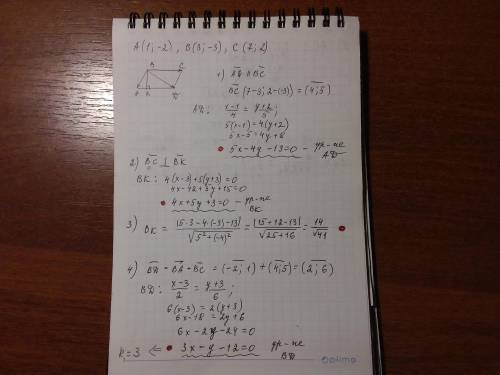 A(1;-2), B(3;-3), C(7;2)
B C
A K D
1) AD ∥ BC
BC (7-3; 2-(-3)) = (4;5)
AD: (x-1)/4 = (y+2)/5;
5(x-1)=4(y+2)
5x-5=4y+8
5x-4y-13=0 - ур-ие AD
2) BC ⊥ BK
BK: 4(x-3)+5(y+3)=0
4x-12+5y+15=0
4x+5y+3=0 - ур-ие BK
3) BK = |5·3-4·(-3)-13|/√(5²+(-4)²) = |15+12-13|/√(25+16) = 14/√41
4) BD = BA+BC = (-2;1)+(4;5)=(2;6)
BD: (x-3)/2 = (y+3)/6;
6(x-3)=2(y+3)
6x-18=2y+6
6x-2y-24=0
k=3 ⇐ 3x-y-12=0 ур-ие BD
olimp